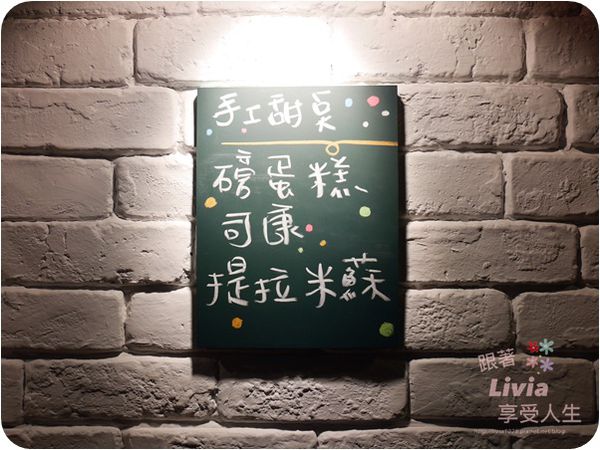 手工甜点
磅蛋糕
司康
提拉米蘇
跟著
Livia
享受人生